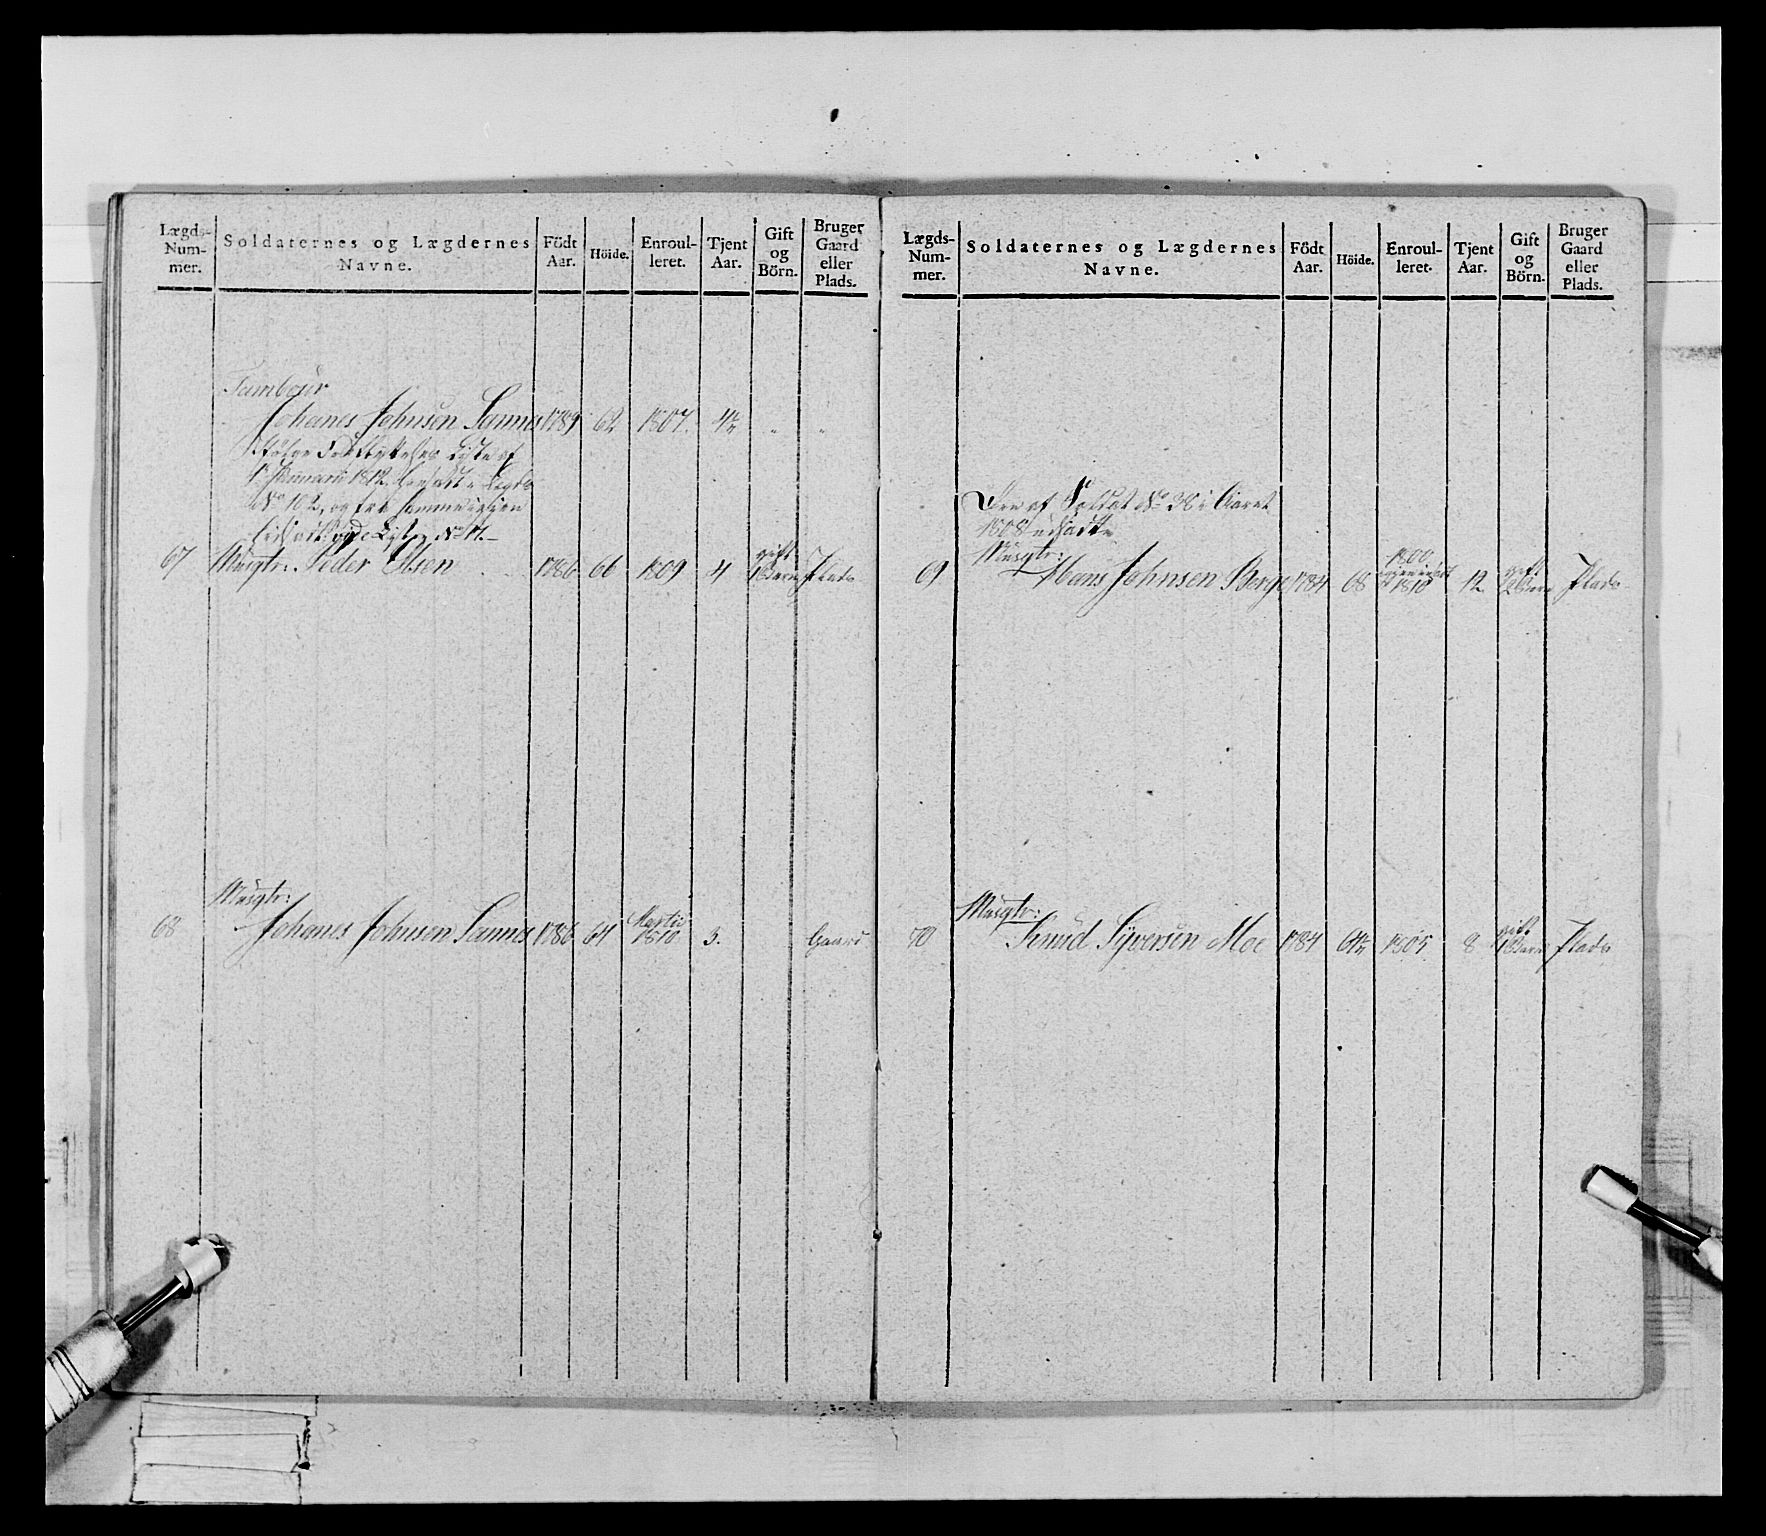 Lægds-Num-mer. Soldaternes og Lægdernes Navne. Födt Aar. Höide. Enroul-leret. Tjent Aar. Gift og Börn. Bruger Gaard eller Plads.
Tambour
Johanes Johnsen Sannes 1789 62 1807. 4½ " "
Liste af
1812
No 102, og fra
67 Musqtr: Peder Olsen 1786 66 1809 4 gift 1 Barn Plads
Musqtr:
68 Johanes Johnsen Sannes 1786 64 Martii 1810 3. Gaard
Lægds-Num-mer. Soldaternes og Lægdernes Navne. Födt Aar. Höide. Enroul-leret. Tjent Aar. Gift og Börn. Bruger Gaard eller Plads.
Den af Soldat No 38 i Aaret
1808 udsadte
Musqtr:
69 Hans Johnsen Berge 1784 68 1800 1810 12 gift 2 Børn Plads
Musqtr:
70 Knud Syversen Moe 1784 64½ 1805 8 gift 1 Barn Plads